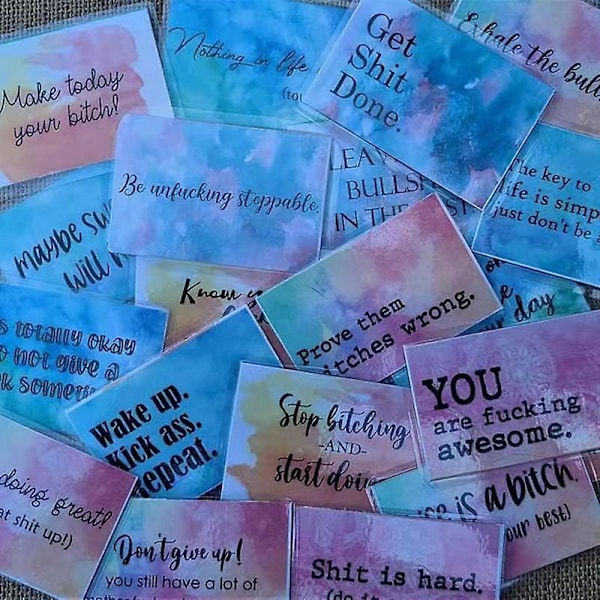 Make today
your bitch!
Nothing in life
(to
Get
Shit
Done.
Exhale the bull
Be unfucking stoppable.
LEA
BULLSH
IN THE
he key to
life is simp
just don't be a
maybe sw
will
Know
totally okay
not give a
someti
Prove them
itches wrong.
day
Wake up.
Kick ass.
epeat.
Stop bitching
-AND-
start doin
YOU
are fucking
awesome.
doing great!
at shit up!)
is a bitch.
our best)
Don't give up!
you still have a lot of
Shit is hard.
(do it